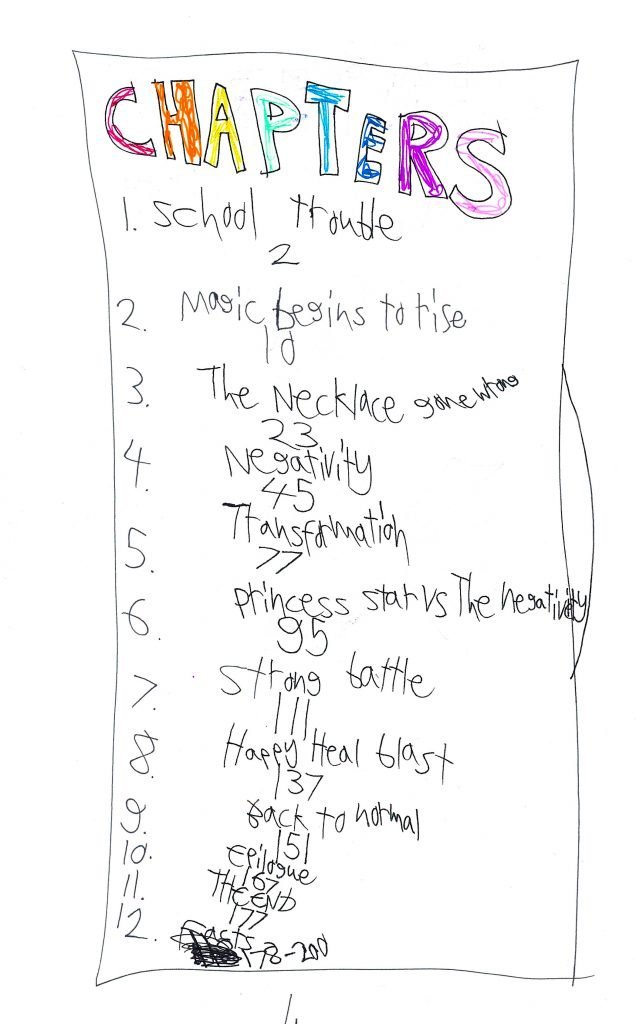 CHAPTERS
1. School Trouble
2
2. Magic begins to rise
10
3. The Necklace gone wrong
23
4. Negativity
45
5. Transformation
77
6. princess star vs The negativity
95
7. strong battle
111
8. Happy Heal blast
137
9. back to normal
151
10. Epilogue
167
11. THE END
177
12. Casts
178-200